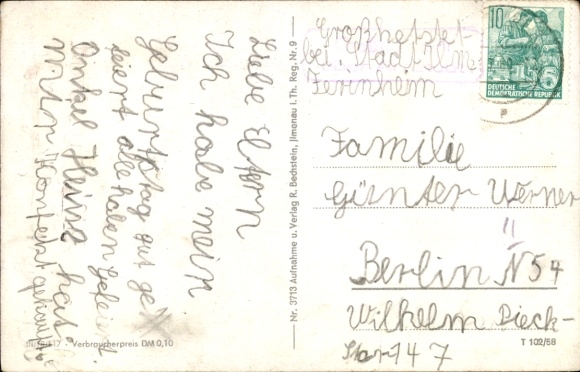 Liebe Eltern
Ich habe mein
Geburtstag gut ge
feiert alle haben gefeiert.
Onkel Heinz hat
mein Konfekt
Nr. 3713 Aufnahme u. Verlag R. Bechstein, Ilmenau i. Th. Reg. Nr. 9
Verbraucherpreis DM 0,10
Großhetstet
bei. Stadt Ilm
Ferinheim
10
6
DEUTSCHE
DEMOKRATISCHE REPUBLIK
Familie
Günter Werner
"
Berlin N 54
Wilhelm Pieck-
Str 147
T 102/58